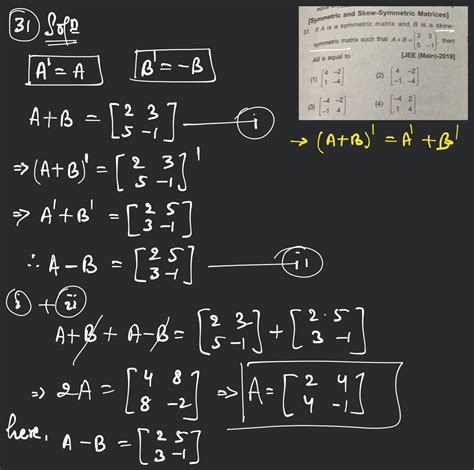 [Symmetric and Skew-Symmetric Matrices]
31. If A is a symmetric matrix and B is a skew-
symmetric matrix such that A+B = [2 3
5 -1], then
AB is equal to [JEE (Main)-2019]
(1) [4 -2
1 -4]
(2) [4 -2
-1 -4]
(3) [-4 -2
-1 4]
(4) [-4 2
1 4]
→ (A+B)' = A' + B'
31) Soln
A' = A
B' = -B
A+B = [2 3
5 -1] — i
⇒ (A+B)' = [2 3
5 -1]'
⇒ A' + B' = [2 5
3 -1]
∴ A - B = [2 5
3 -1] — ii
i + ii
A + B + A - B = [2 3
5 -1] + [2 5
3 -1]
⇒ 2A = [4 8
8 -2] ⇒ A = [2 4
4 -1]
here, A - B = [2 5
3 -1]